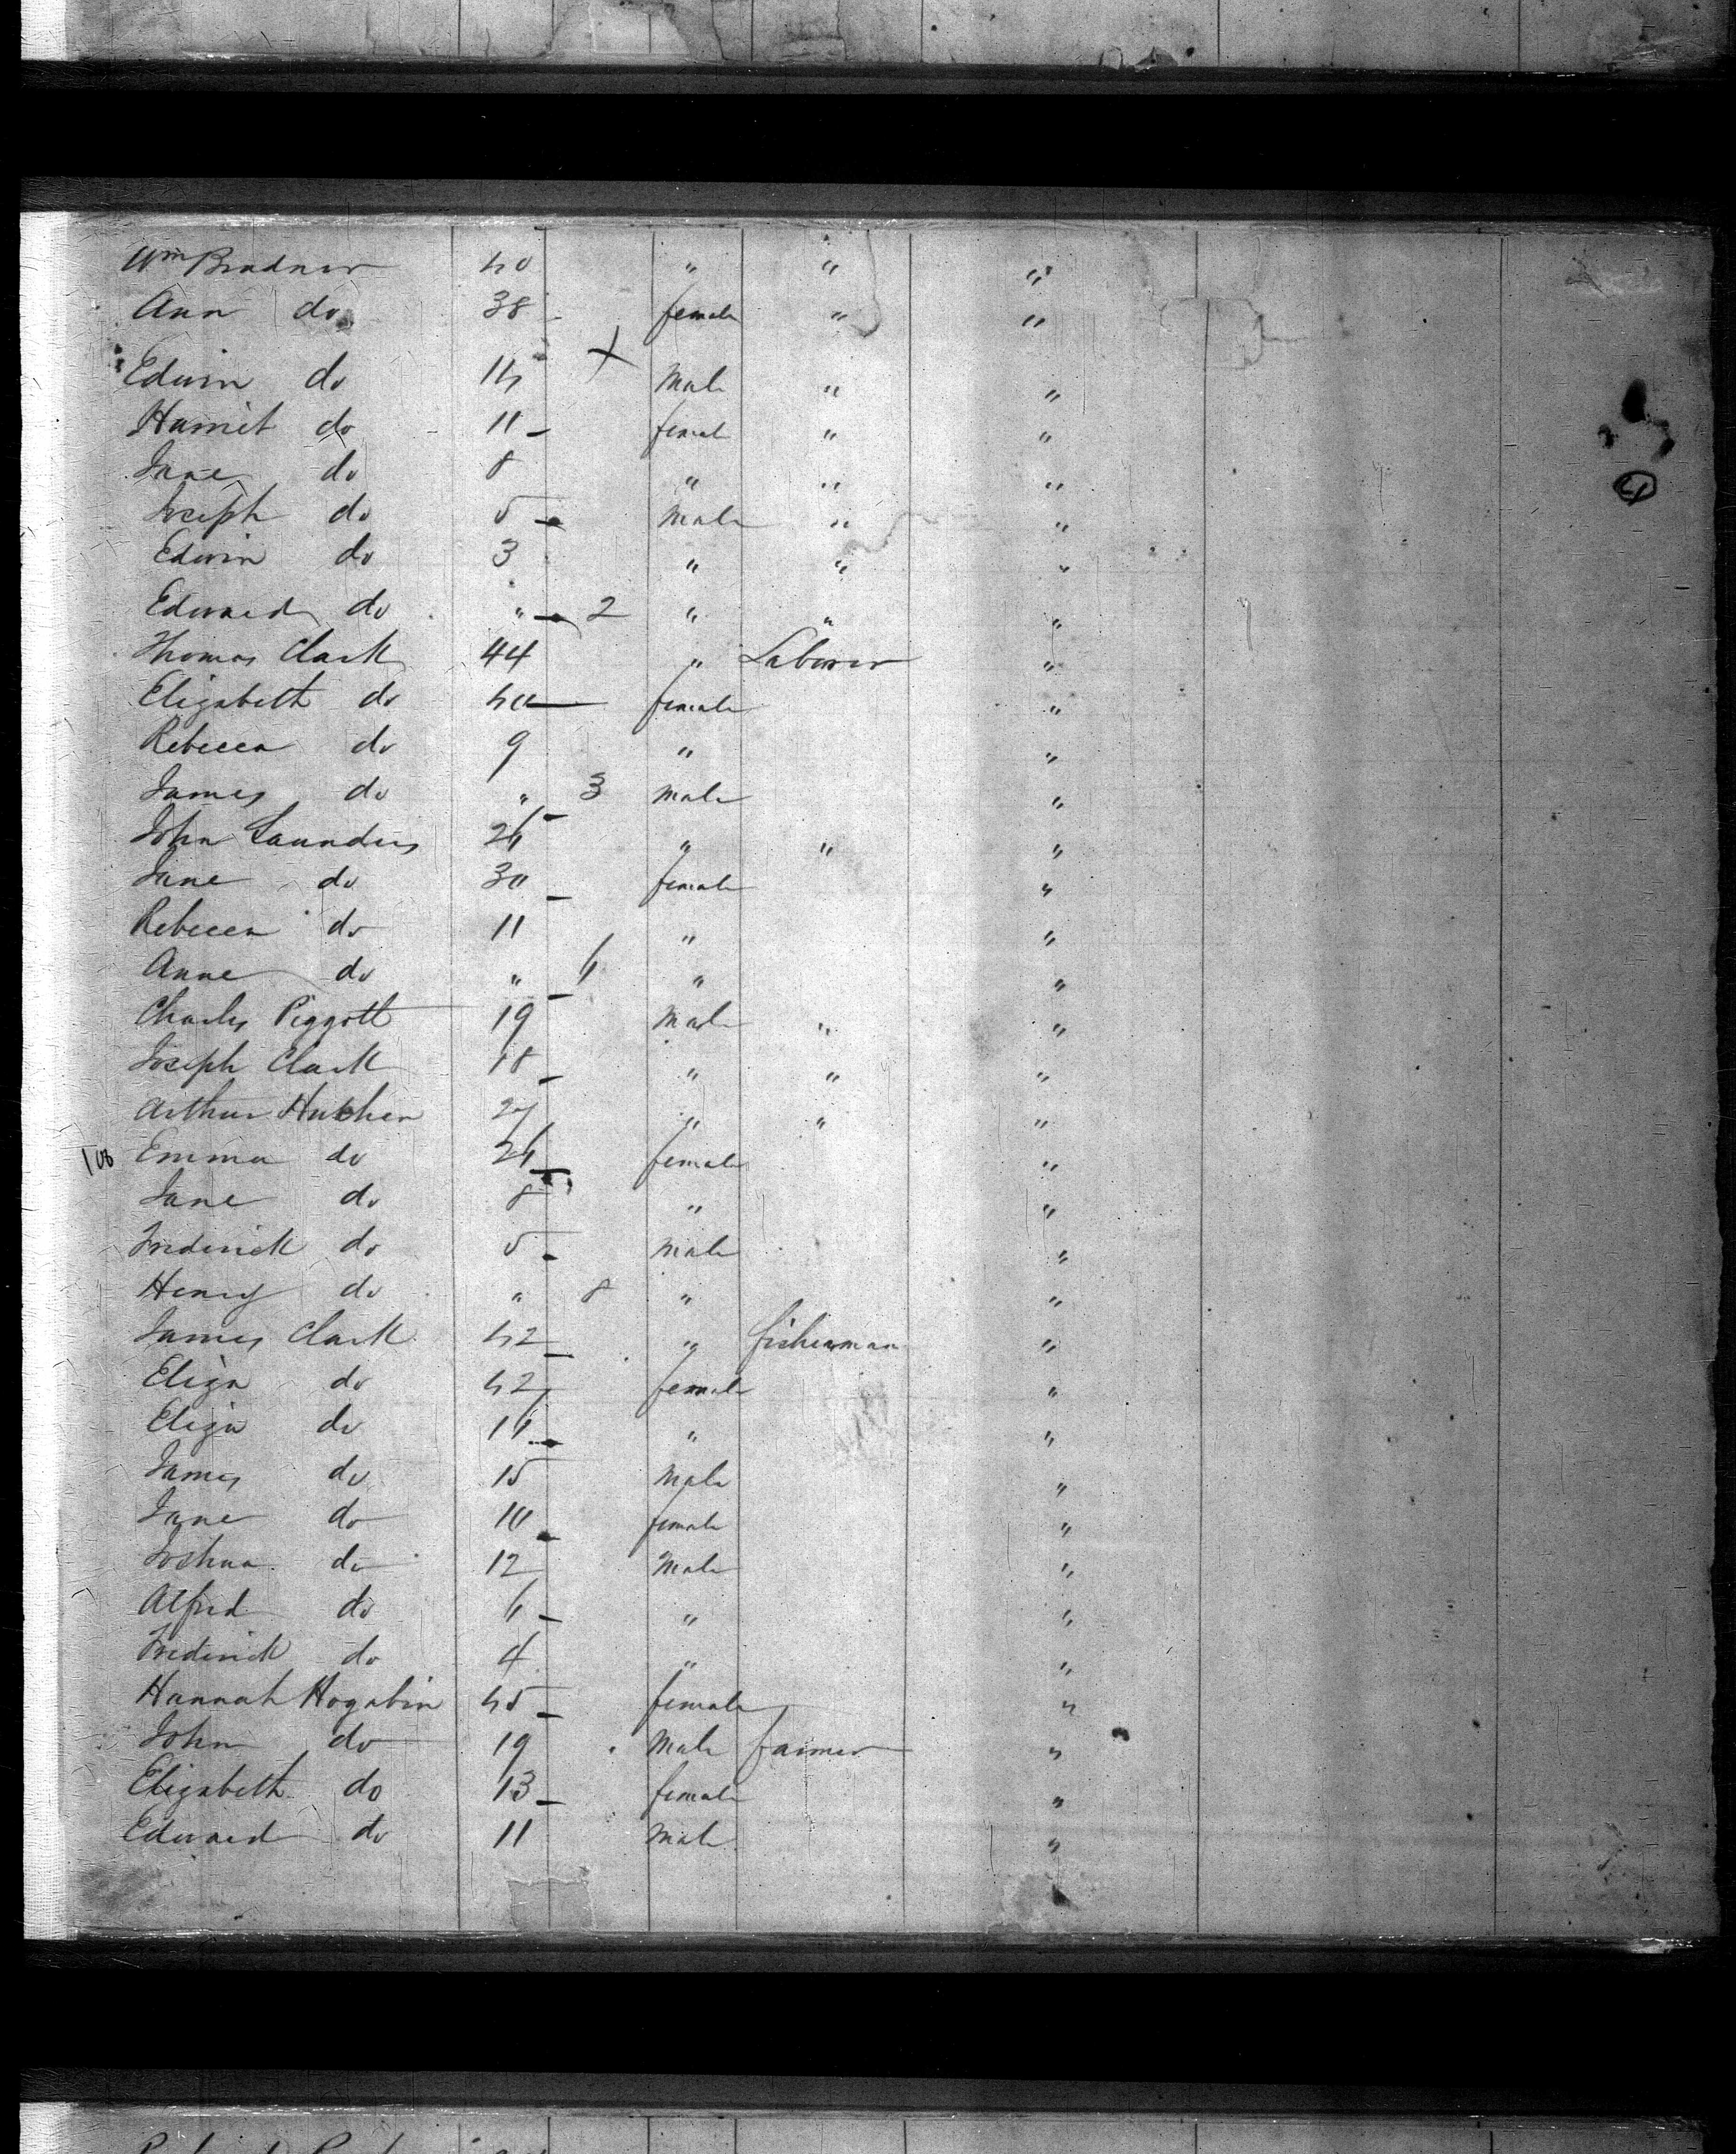 Wm Bradner 40 " " "
Ann do 38 female " "
Edwin do 14 male " "
Harriet do 11 female " "
Jane do 8 " " "
Joseph do 5 male " "
Edwin do 3 " " "
Edward do " 2 " " "
Thomas Clark 44 " Laborer "
Elizabeth do 40 female "
Rebecca do 9 " "
James do " 3 male "
John Saunders 26 " " "
Jane do 30 female "
Rebecca do 11 " "
Anne do " 6 " "
Charles Piggott 19 male " "
Joseph Clark 18 " " "
Arthur 27 " " "
100 Emma do 26 female "
Jane do 8 " "
Frederick do 5 male "
Henry do " 8 " "
James Clark 42 " fisherman "
Eliza do 42 female "
Eliza do 16 " "
James do 15 male "
Jane do 10 female "
Joshua do 12 male "
Alfred do 6 " "
Frederick do 4 " "
Hannah Hogabin 45 female "
John do 19 male farmer "
Elizabeth do 13 female "
Edward do 11 male "